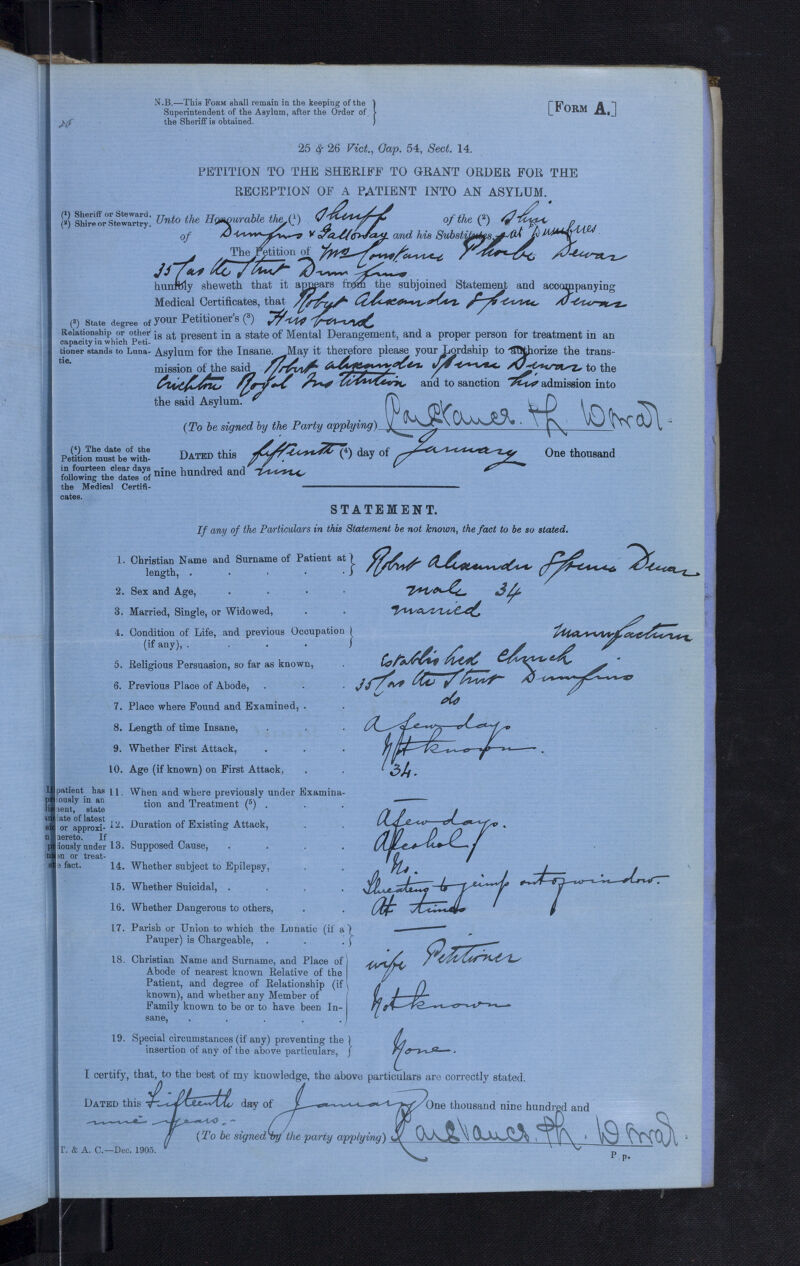 N.B.—This Form shall remain in the keeping of the
Superintendent of the Asylum, after the Order of
the Sheriff is obtained.
[Form A.]
25 & 26 Vict., Cap. 54, Sect. 14.
PETITION TO THE SHERIFF TO GRANT ORDER FOR THE
RECEPTION OF A PATIENT INTO AN ASYLUM.
(1) Sheriff or Steward.
(2) Shire or Stewartry.
Unto the Honourable the (1) Sheriff of the (2) Shire
of Dumfries & Galloway and his Substitutes at Dumfries
The Petition of Mrs Constance Phoebe Dewar
35 Castle Street Dumfries
humbly sheweth that it appears from the subjoined Statement and accompanying
Medical Certificates, that Robert Alexander Spence Dewar
(3) State degree of
Relationship or other
capacity in which Peti-
tioner stands to Luna-
tic.
your Petitioner's (3) Husband
is at present in a state of Mental Derangement, and a proper person for treatment in an
Asylum for the Insane. May it therefore please your Lordship to authorize the trans-
mission of the said Robert Alexander Spence Dewar to the
Crichton Royal Institution and to sanction his admission into
the said Asylum.
(To be signed by the Party applying) Constance. Ph Dewar.
(4) The date of the
Petition must be with-
in fourteen clear days
following the dates of
the Medical Certifi-
cates.
Dated this fifteenth (4) day of January One thousand
nine hundred and nine
STATEMENT.
If any of the Particulars in this Statement be not known, the fact to be so stated.
1. Christian Name and Surname of Patient at
length, . . . . . Robert Alexander Spence Dewar
2. Sex and Age, . . . . male 34
3. Married, Single, or Widowed, . . married
4. Condition of Life, and previous Occupation
(if any), . . . . manufacturer
5. Religious Persuasion, so far as known, . Established Church
6. Previous Place of Abode, . . . 35 Castle Street Dumfries
7. Place where Found and Examined, . . do
8. Length of time Insane, . . . A few days
9. Whether First Attack, . . . Not known.
10. Age (if known) on First Attack, . . 34.
patient has
iously in an
ment, state
ate of latest
or approxi-
hereto. If
iously under
on or treat-
fact.
11. When and where previously under Examina-
tion and Treatment (5) . . . —
12. Duration of Existing Attack, . . A few days.
13. Supposed Cause, . . . . Alcohol
14. Whether subject to Epilepsy, . . No.
15. Whether Suicidal, . . . . Threatens to jump out of window.
16. Whether Dangerous to others, . . At times
17. Parish or Union to which the Lunatic (if a
Pauper) is Chargeable, . . . —
18. Christian Name and Surname, and Place of
Abode of nearest known Relative of the
Patient, and degree of Relationship (if
known), and whether any Member of
Family known to be or to have been In-
sane, . . . . .
wife Petitioner
Not known
19. Special circumstances (if any) preventing the
insertion of any of the above particulars, None.
I certify, that, to the best of my knowledge, the above particulars are correctly stated.
Dated this Fifteenth day of January One thousand nine hundred and
nine years.
(To be signed by the party applying) Constance. Ph. Dewar.
T. & A. C.—Dec. 1905.
P p.